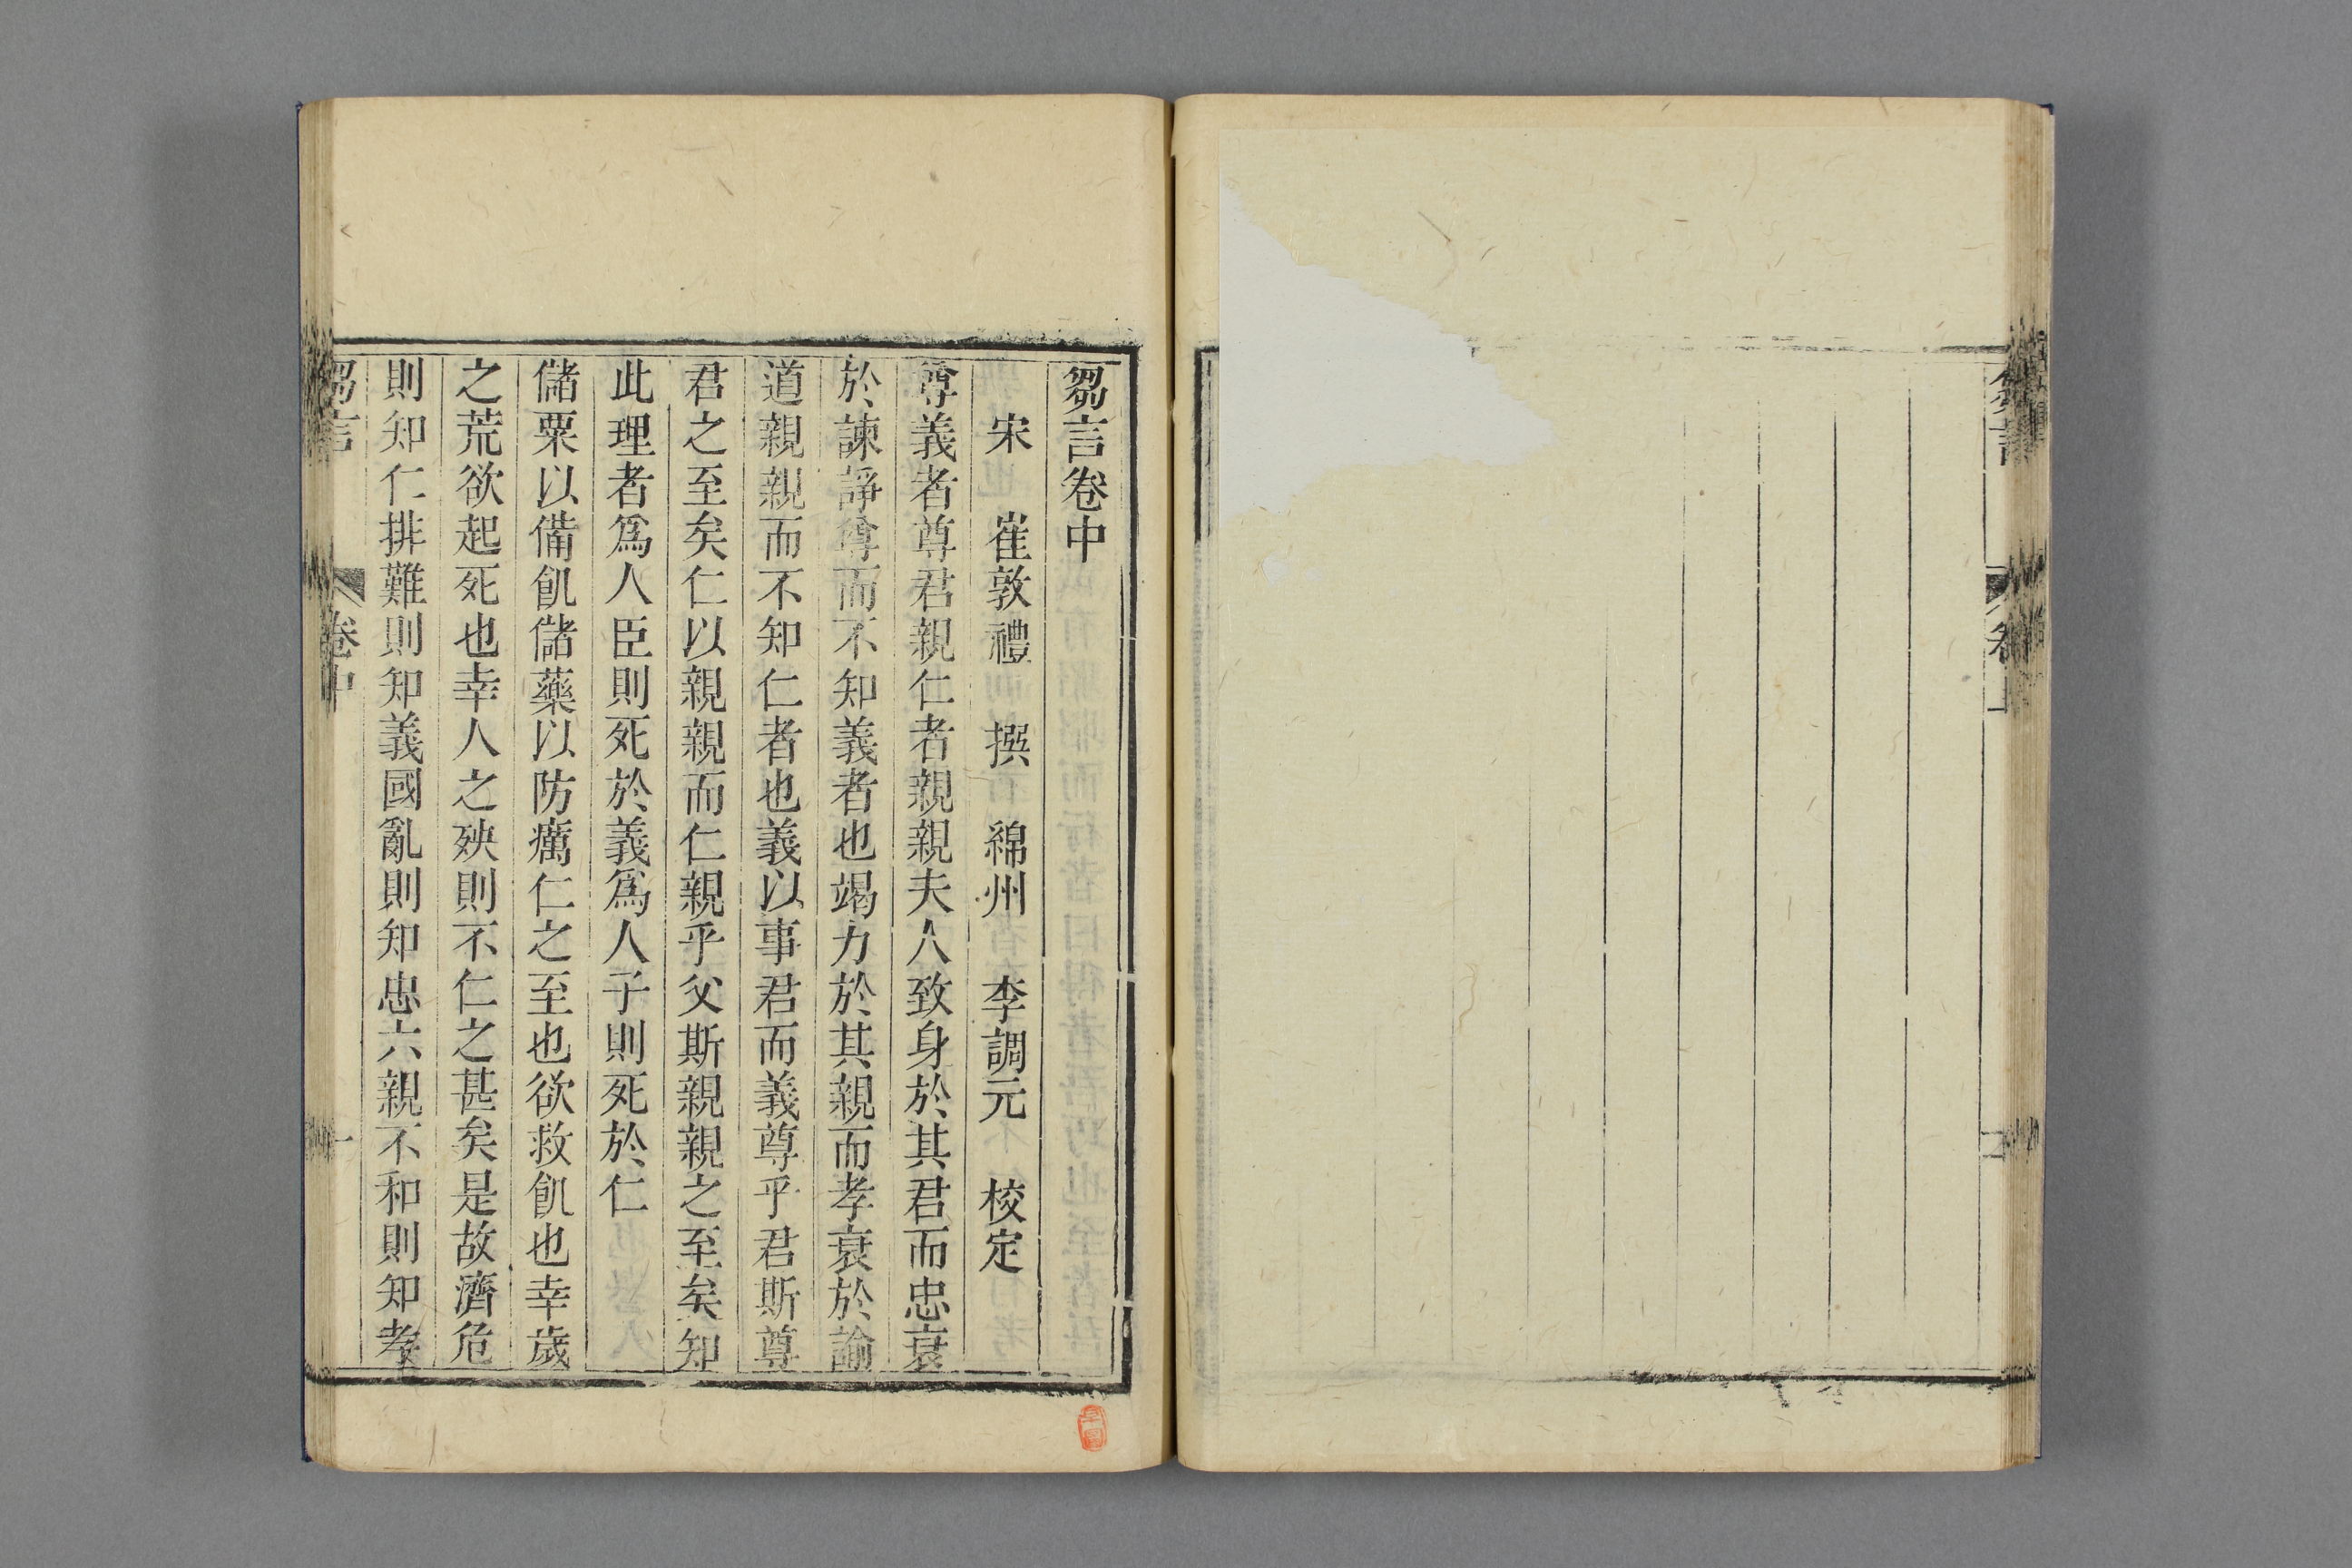 芻言卷中
宋 崔敦禮 撰 綿州 李調元 校定
尊義者尊君親仁者親親夫人致身於其君而忠衰
於諫諍尊而不知義者也竭力於其親而孝衰於諭
道親親而不知仁者也義以事君而義尊乎君斯尊
君之至矣仁以親親而仁親乎父斯親親之至矣知
此理者爲人臣則死於義爲人子則死於仁
儲粟以備飢儲藥以防癘仁之至也欲救飢也幸歲
之荒欲起死也幸人之殃則不仁之甚矣是故濟危
則知仁排難則知義國亂則知忠六親不和則知孝
芻言 卷中 一